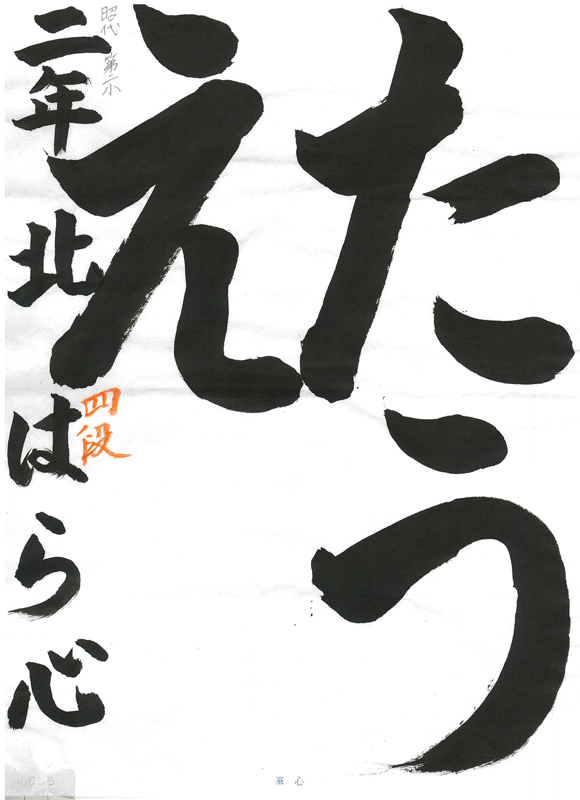 たう
え
昭代第二小
二年北はら心
四段
筆心
のりしろ